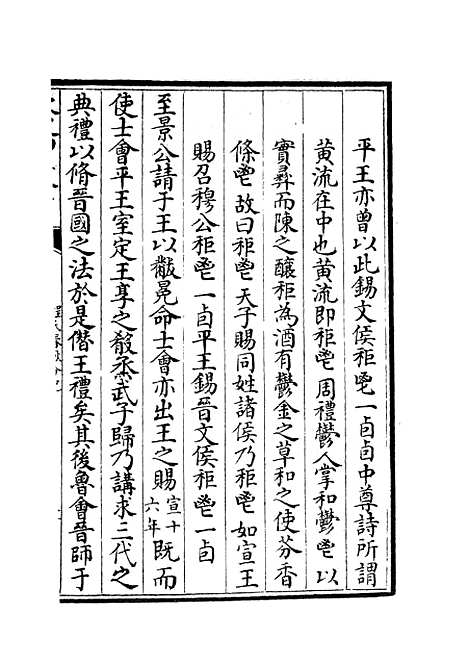 平王亦曾以此錫文侯秬鬯一卣卣中尊詩所謂
黄流在中也黄流即秬鬯周禮鬱人掌和鬱鬯以
實彝而陳之釀秬為酒有鬱金之草和之使芬香
條鬯故曰秬鬯天子賜同姓諸侯乃秬鬯如宣王
賜召穆公秬鬯一卣平王錫晉文侯秬鬯一卣
至景公請于王以黻冕命士會亦出王之賜宣十六年既而
使士會平王室定王享之殽烝武子歸乃講求三代之
典禮以脩晉國之法於是僭王禮矣其後魯會晉師于